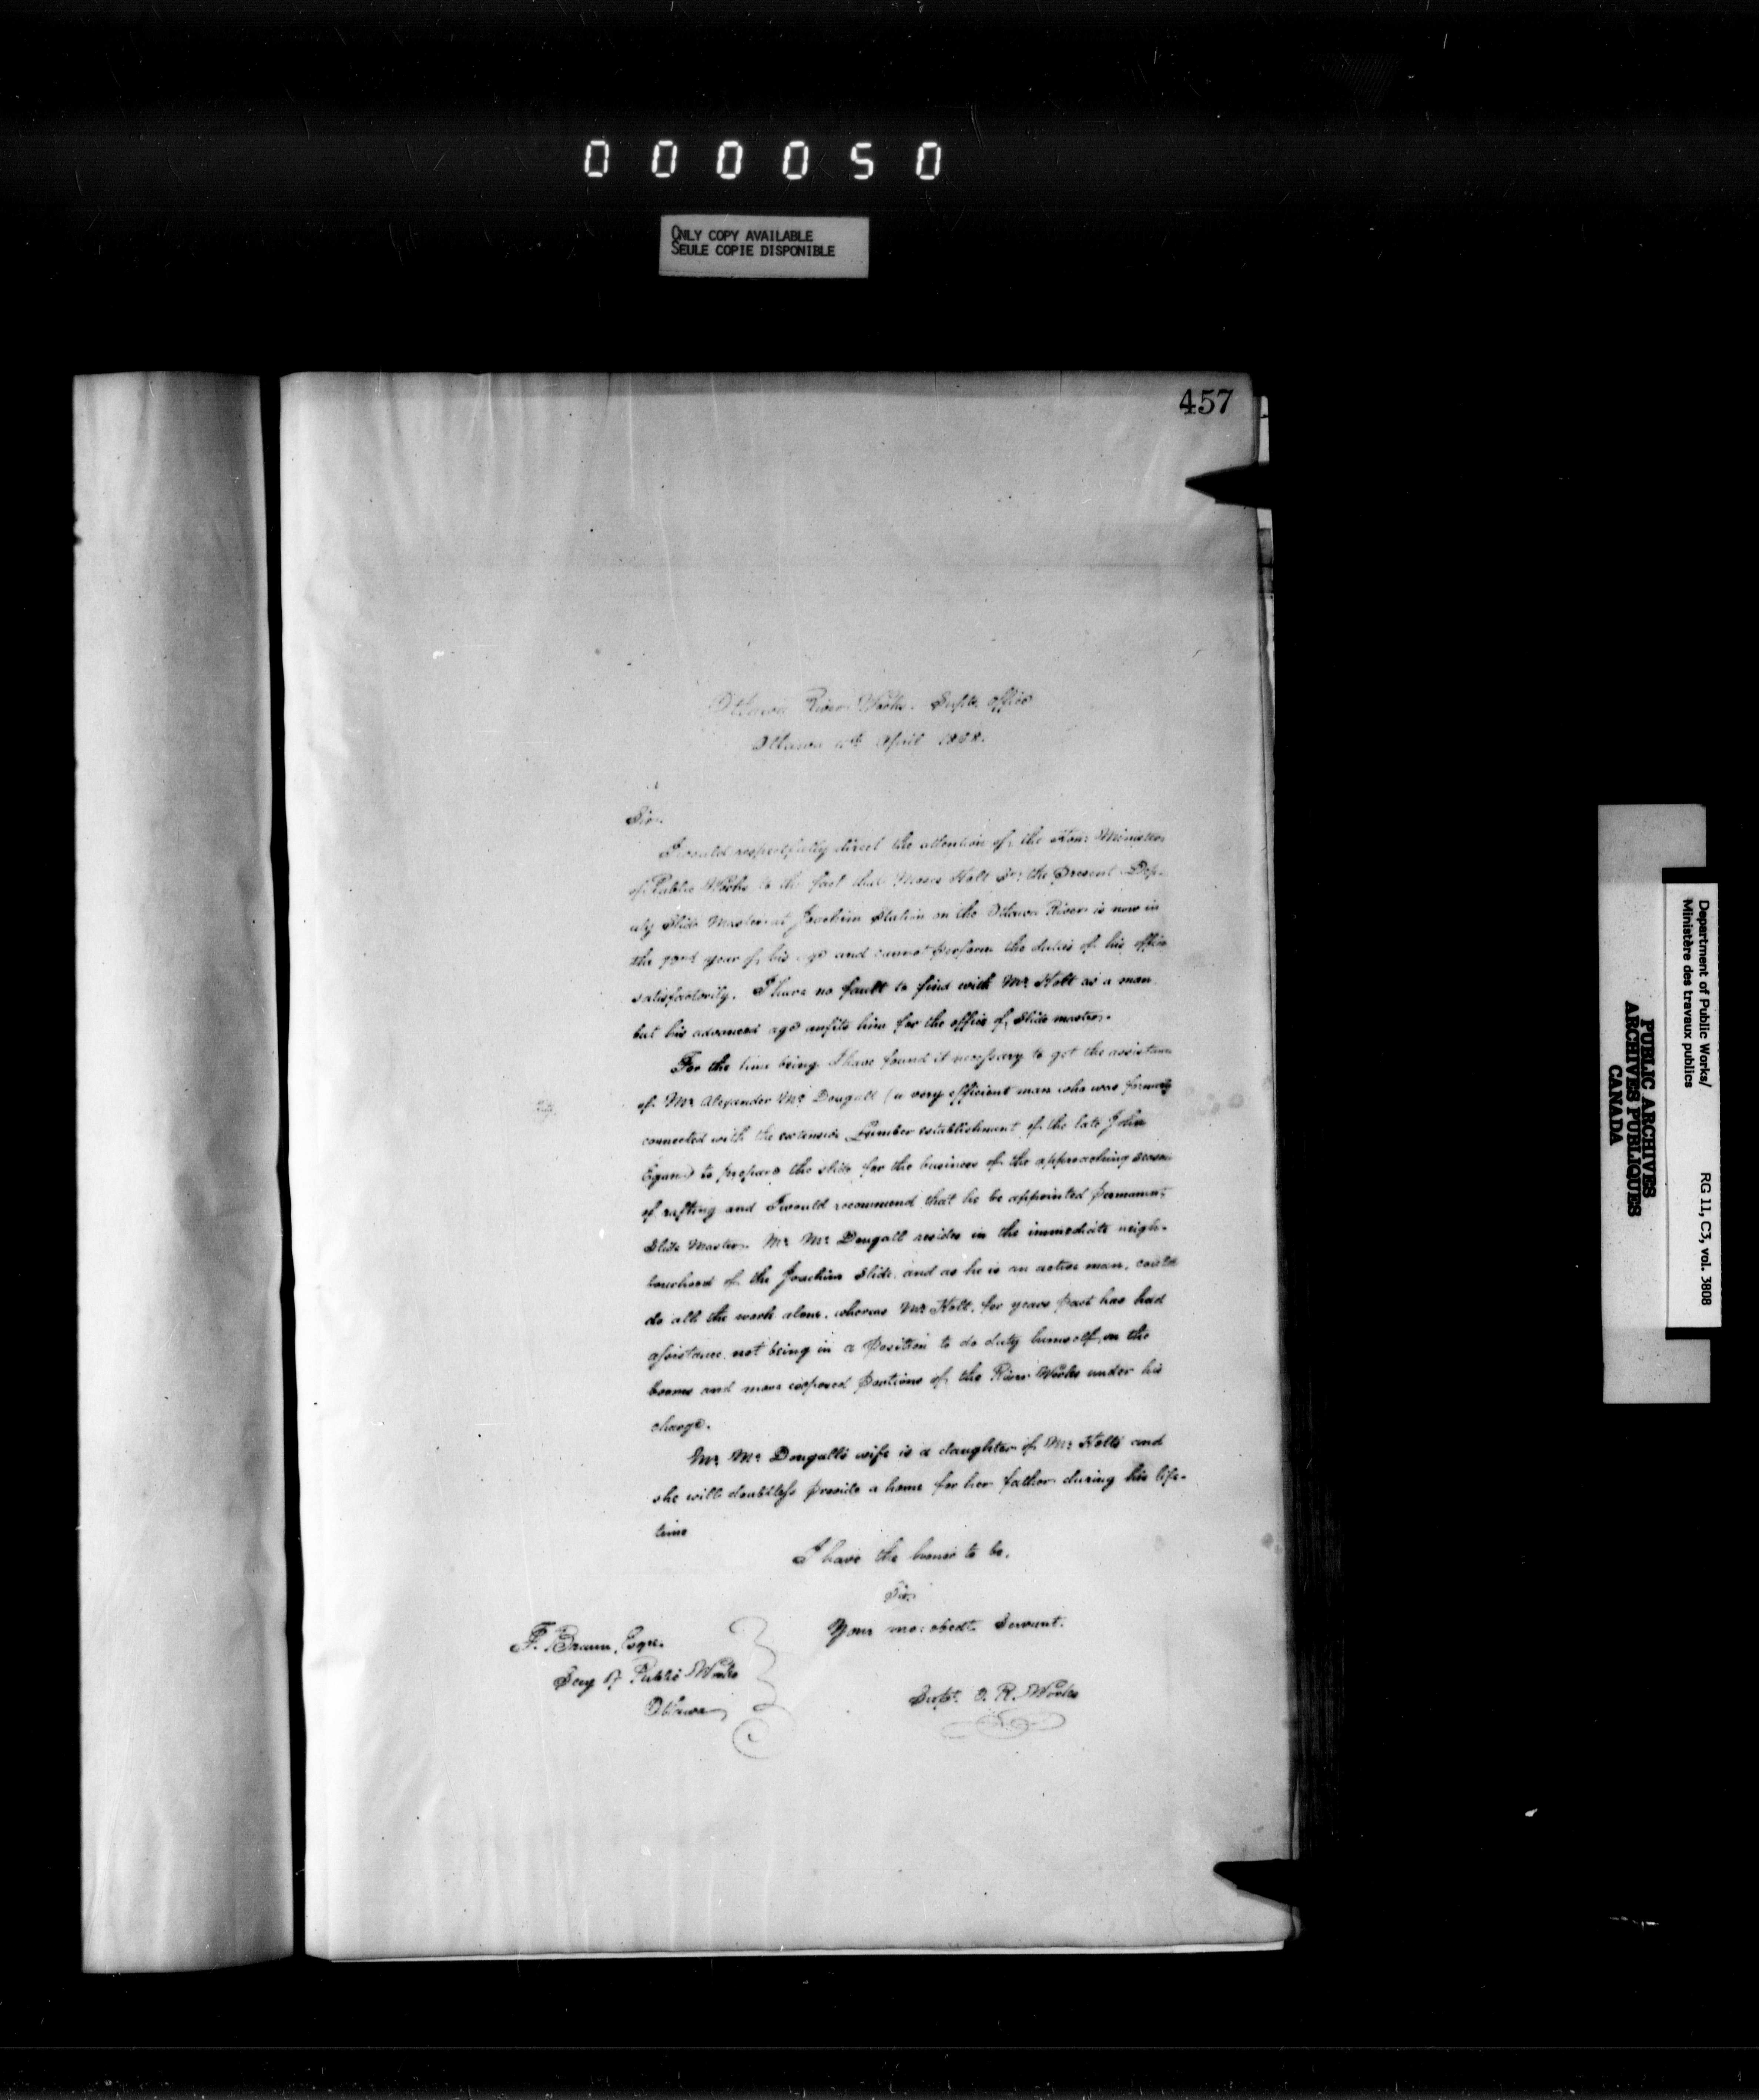 000050
ONLY COPY AVAILABLE
SEULE COPIE DISPONIBLE
457
Ottawa River Works. Supts. Office
Ottawa April 1868.
Sir.
I would respectfully direct the attention of the Hon: Minister
of Public Works to the fact that Moses Holt Sr: the present Dep-
uty Slide Master at Joachim Station on the Ottawa River is now in
the year of his age and cannot perform the duties of his office
satisfactorily. I have no fault to find with Mr. Holt as a man
but his advanced age unfits him for the office of Slide master.
For the time being I have found it necessary to get the assistance
of Mr. Alexander Mc Dougall (a very efficient man who was formerly
connected with the extensive Lumber establishment of the late John
Egan) to prepare the slide for the business of the approaching season
of rafting and I would recommend that he be appointed permanent
Slide Master. Mr. Mc Dougall resides in the immediate neigh-
bourhood of the Joachim Slide, and as he is an active man, could
do all the work alone, whereas Mr. Holt, for years past has had
assistance, not being in a position to do duty himself, on the
booms and more exposed portions of the River Works under his
charge.
Mr. Mc Dougall's wife is a daughter of Mr. Holts and
she will doubtless provide a home for her father during his life-
time
I have the honor to be,
Sir,
Your mo: obedt. Servant.
F. Braun, Esqre.
Secy of Public Works
Ottawa
Supt. O. R. Works
Department of Public Works/
Ministère des travaux publics
RG 11, C3, vol. 3808
PUBLIC ARCHIVES
ARCHIVES PUBLIQUES
CANADA